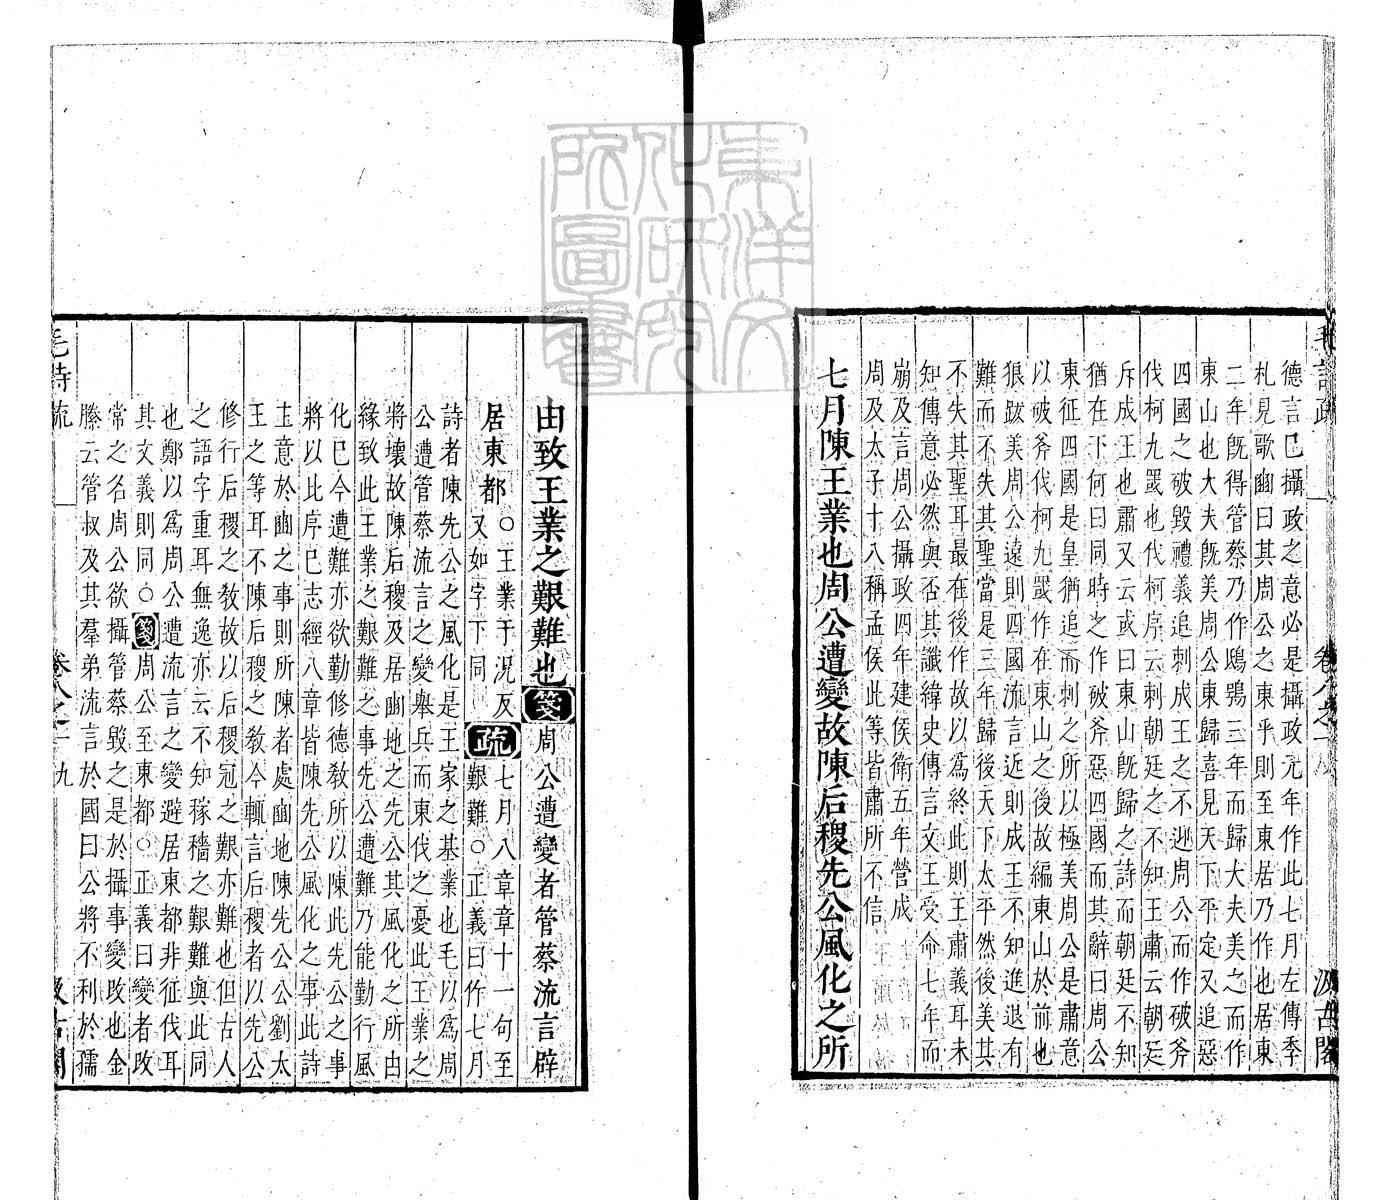 德言已攝政之意必是攝政元年作此七月左傳季
札見歌豳曰其周公之東乎則至東居乃作也居東
二年旣得管蔡乃作鴟鴞三年而歸大夫美之而作
東山也大夫旣美周公東歸喜見天下平定又追惡
四國之破毀禮義追刺成王之不迎周公而作破斧
伐柯九罭也伐柯序云刺朝廷之不知王肅云朝廷
斥成王也肅又云或曰東山旣歸之詩而朝廷不知
猶在下何曰同時之作破斧惡四國而其辭曰周公
東征四國是皇猶追而刺之所以極美周公是肅意
以破斧伐柯九罭作在東山之後故編東山於前也
狼跋美周公遠則四國流言近則成王不知進退有
難而不失其聖當是三年歸後天下太平然後美其
不失其聖耳最在後作故以為終此則王肅義耳未
知傳意必然與否其讖緯史傳言文王受命七年而
崩及言周公攝政四年建侯衛五年營成
周及太子十八稱孟侯此等皆肅所不信
七月陳王業也周公遭變故陳后稷先公風化之所
毛詩疏
卷八之一
汲古閣
由致王業之艱難也箋周公遭變者管蔡流言辟
居東都
○王業于況反
又如字下同
疏
七月八章章十一句至
艱難○正義曰作七月
詩者陳先公之風化是王家之基業也毛以為周
公遭管蔡流言之變舉兵而東伐之憂此王業之
將壞故陳后稷及居豳地之先公其風化之所由
緣致此王業之艱難之事先公遭難乃能勤行風
化已今遭難亦欲勤修德教所以陳此先公之事
將以比序已志經八章皆陳先公風化之事此詩
主意於豳之事則所陳者處豳地陳先公公劉太
王之等耳不陳后稷之教今輒言后稷者以先公
修行后稷之教故以后稷冠之艱亦難也但古人
之語字重耳無逸亦云不知稼穡之艱難與此同
也鄭以為周公遭流言之變避居東都非征伐耳
其文義則同○箋周公至東都○正義曰變者改
常之名周公欲攝管蔡毀之是於攝事變改也金
縢云管叔及其羣弟流言於國曰公將不利於孺
毛詩疏
卷八之一
九
汲古閣
東洋文化研究所圖書